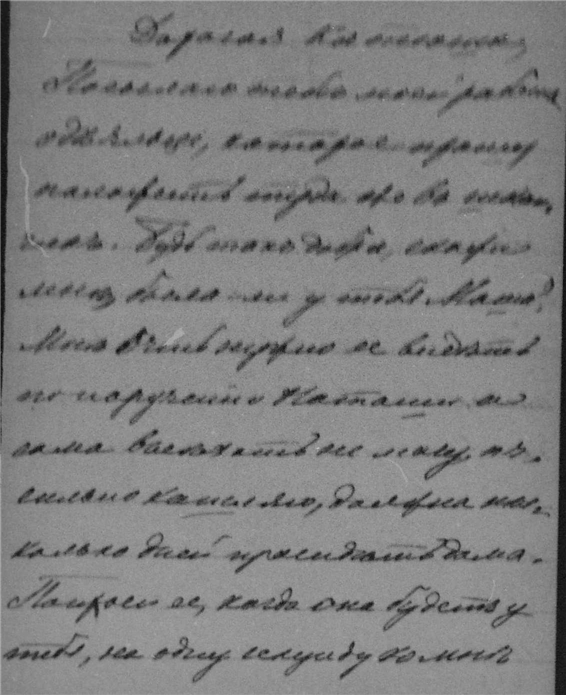 Дорогая
Посылаю тебе моей работы
одѣяльце, которое прошу
положить туда же въ
Будь такъ добра, скажи
мнѣ, была ли у тебя Маша?
Мнѣ очень нужно ее видѣть
по порученію Наташи а
сама выѣхать не могу, т.к.
сильно кашляю, должна нѣс-
колько дней просидѣть дома.
Попроси ее, когда она будетъ у
тебя, на одну секунду ко мнѣ